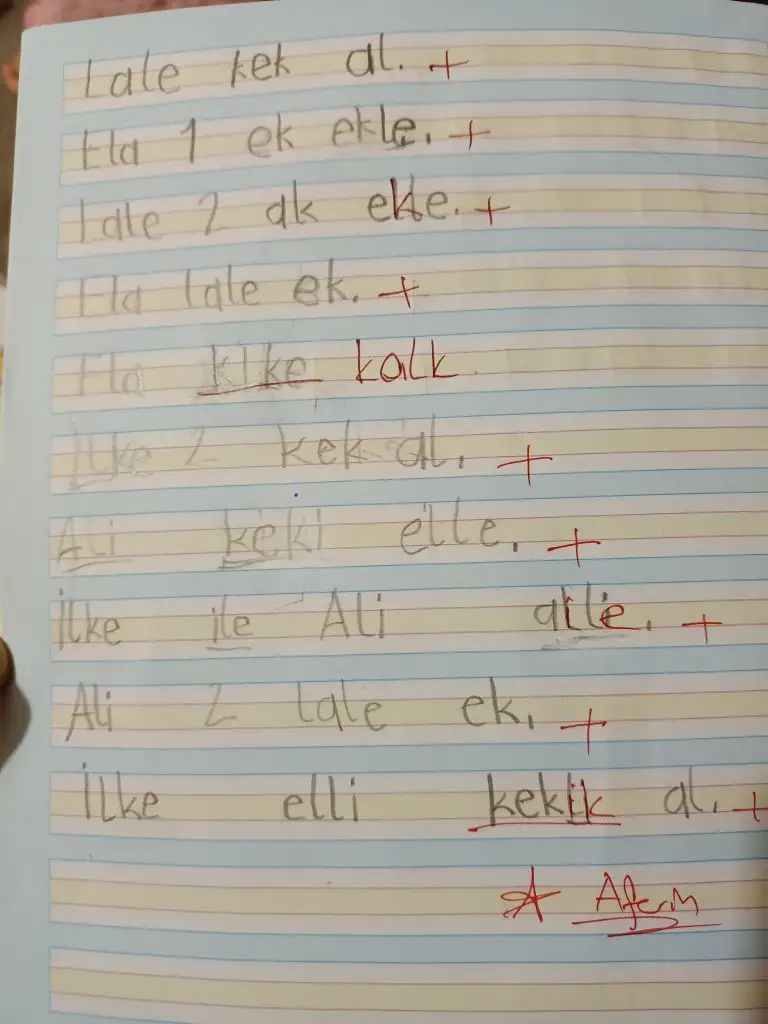 Lale kek al. +
Ela 1 ek ekle. +
Lale 2 ak ekle. +
Ela lale ek. +
Ela klke kalk
İlke 2 kek al. +
Ali keki elle. +
İlke ile Ali aile. +
Ali 2 lale ek. +
İlke elli kekik al. +
Aferin